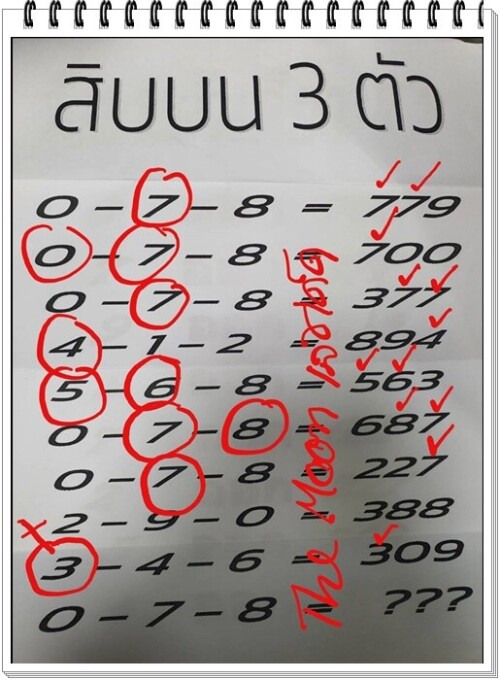 สิบบน 3 ตัว
0 - 7 - 8 = 779
0 - 7 - 8 = 700
0 - 7 - 8 = 377
4 - 1 - 2 = 894
5 - 6 - 8 = 563
0 - 7 - 8 = 687
0 - 7 - 8 = 227
2 - 9 - 0 = 388
3 - 4 - 6 = 309
0 - 7 - 8 = ???
The Moon